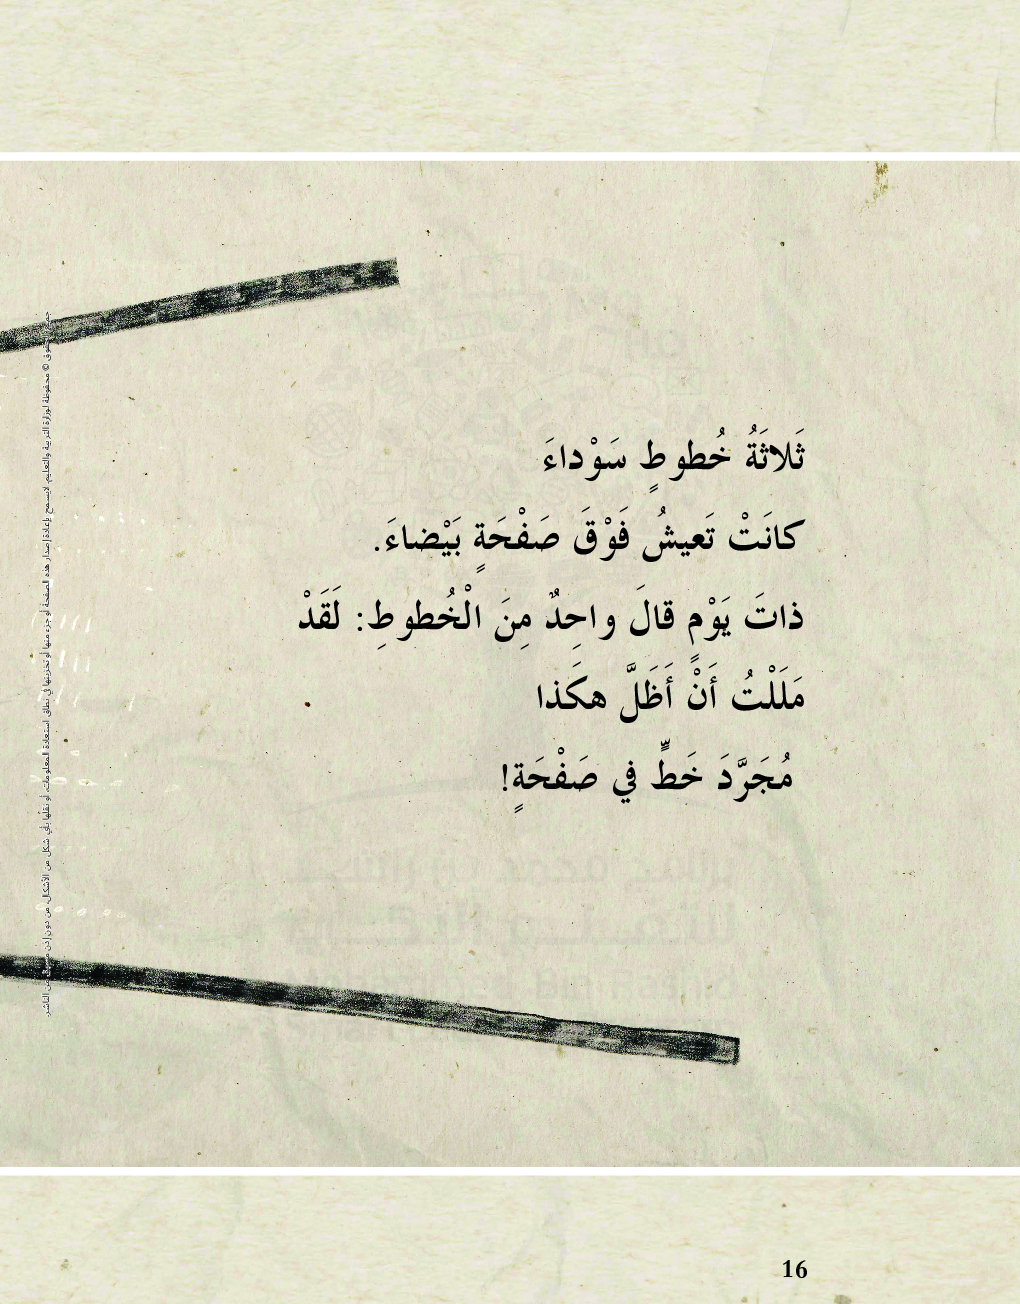 ثَلاثَةُ خُطوطٍ سَوْداءَ
كانَتْ تَعيشُ فَوْقَ صَفْحَةٍ بَيْضاءَ.
ذاتَ يَوْمٍ قالَ واحِدٌ مِنَ الْخُطوطِ: لَقَدْ
مَلَلْتُ أَنْ أَظَلَّ هكَذا
مُجَرَّدَ خَطٍّ في صَفْحَةٍ!
جميع الحقوق © محفوظة لوزارة التربية والتعليم. لايسمح بإعادة إصدار هذه الصفحة أو جزء منها أو تخزينها في نطاق استعادة المعلومات، أو نقلها بأي شكل من الأشكال، من دون إذن مسبق من الناشر.
16